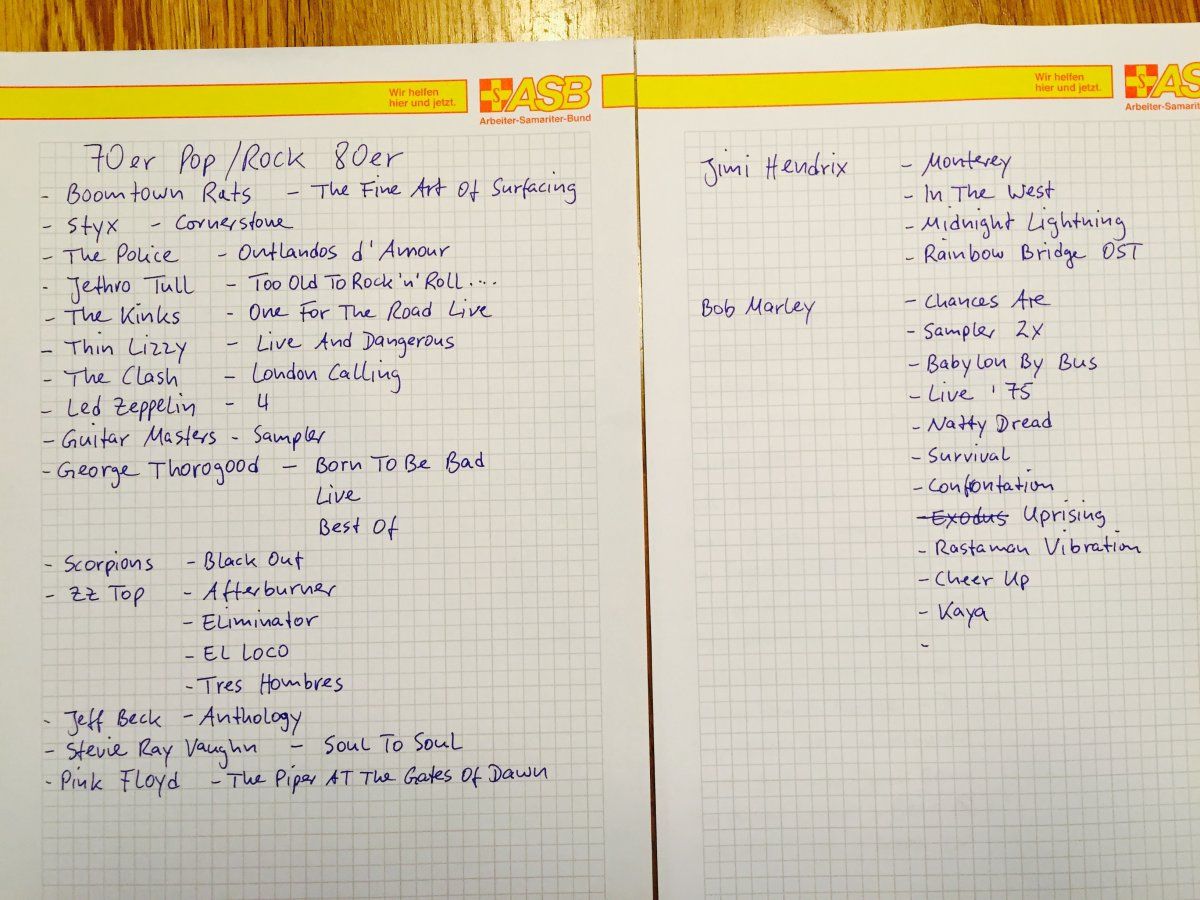 Wir helfen
hier und jetzt.
S ASB
Arbeiter-Samariter-Bund
70er Pop/Rock 80er
- Boomtown Rats - The Fine Art Of Surfacing
- Styx - Cornerstone
- The Police - Outlandos d'Amour
- Jethro Tull - Too Old To Rock'n'Roll....
- The Kinks - One For The Road Live
- Thin Lizzy - Live And Dangerous
- The Clash - London Calling
- Led Zeppelin - 4
- Guitar Masters - Sampler
- George Thorogood - Born To Be Bad
Live
Best Of
- Scorpions - Black Out
- ZZ Top - Afterburner
- Eliminator
- El Loco
- Tres Hombres
- Jeff Beck - Anthology
- Stevie Ray Vaughn - Soul To Soul
- Pink Floyd - The Piper AT The Gates Of Dawn
Wir helfen
hier und jetzt.
S AS
Arbeiter-Samarit
Jimi Hendrix - Monterey
- In The West
- Midnight Lightning
- Rainbow Bridge OST
Bob Marley - Chances Are
- Sampler 2x
- Babylon By Bus
- Live '75
- Natty Dread
- Survival
- Confontation
- Exodus Uprising
- Rastaman Vibration
- Cheer Up
- Kaya
-